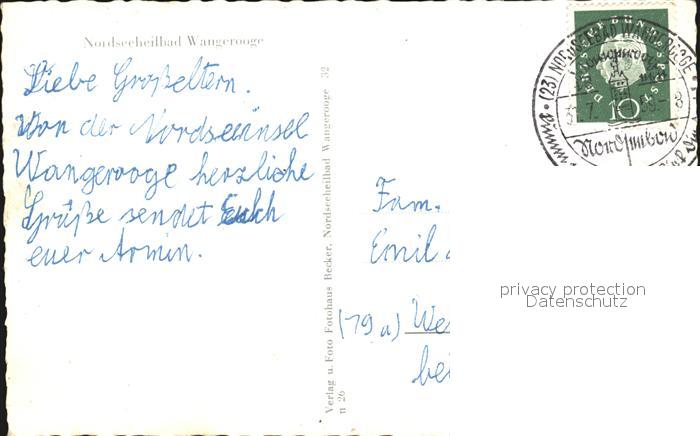 Nordseeheilbad Wangerooge
Liebe Großeltern.
Von der Nordseeinsel
Wangerooge herzliche
Grüße sendet Euch
euer Armin.
Verlag u. Foto Fotohaus Becker, Nordseeheilbad Wangerooge 32
n 26
Fam.
Emil
(79a) We
bei
DEUTSCHE BUNDESPOST
10
(23) NORDSEEBAD WANGEROOGE
privacy protection
Datenschutz